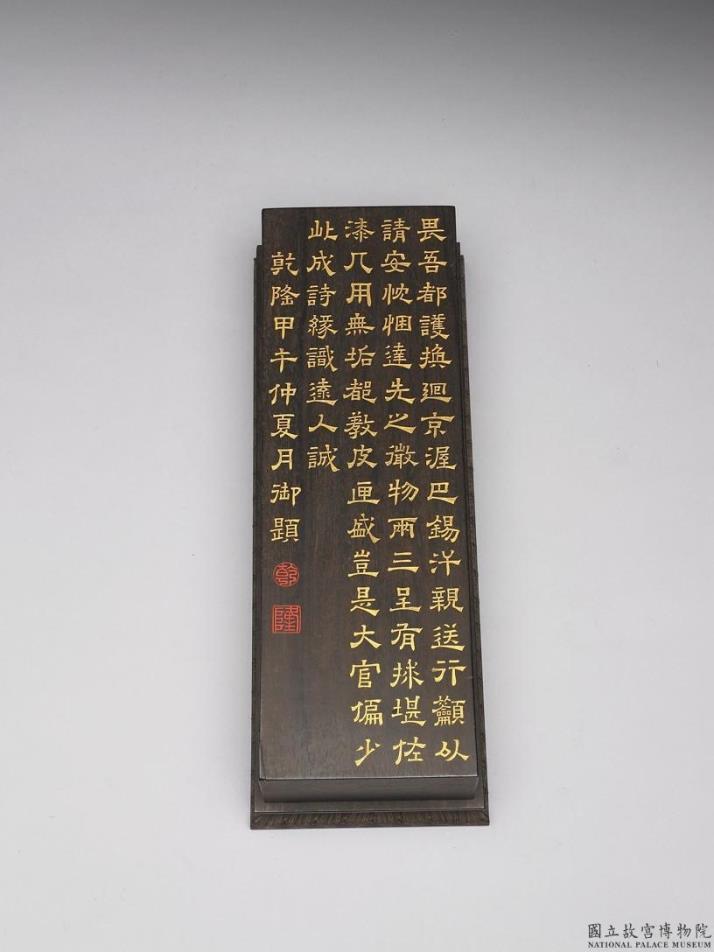 畏吾都護換迴京渥巴錫汗親送行籲以
請安忱悃達先之微物兩三呈有捄堪佐
漆几用無垢都敎皮匣盛豈是大官偏少
此成詩緣識遠人誠
乾隆甲午仲夏月御題
乾
隆
國立故宮博物院
NATIONAL PALACE MUSEUM